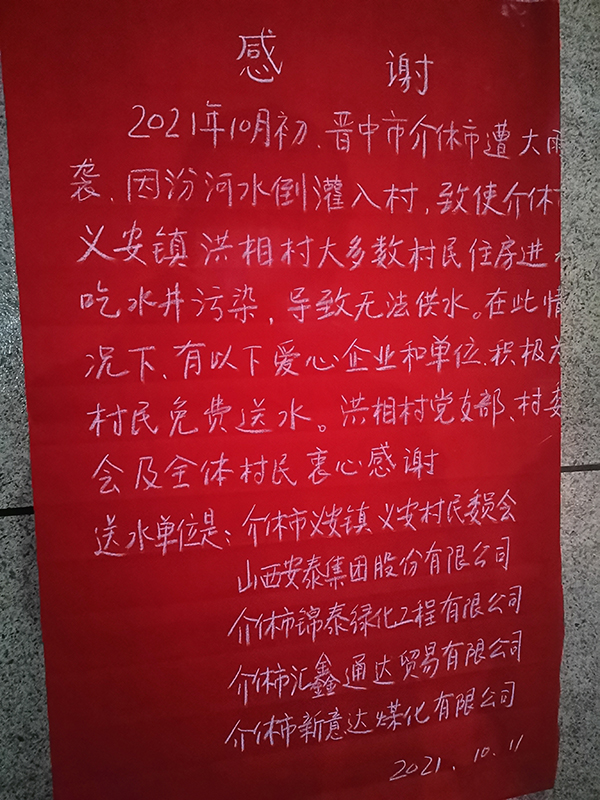 感谢
2021年10月初、晋中市介休市遭大雨
袭、因汾河水倒灌入村,致使介休
义安镇洪相村大多数村民住房进
吃水井污染,导致无法供水。在此情
况下、有以下爱心企业和单位、积极为
村民免费送水。洪相村党支部、村委
会及全体村民衷心感谢
送水单位是:介休市义安镇义安村民委员会
山西安泰集团股份有限公司
介休市锦泰绿化工程有限公司
介休市汇鑫通达贸易有限公司
介休市新意达煤化有限公司
2021.10.11